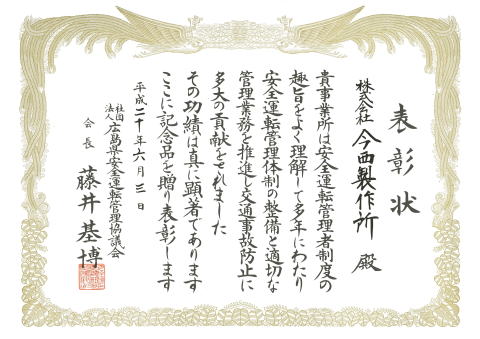 表彰状
株式会社 今西製作所 殿
貴事業所は安全運転管理者制度の
趣旨をよく理解して多年にわたり
安全運転管理体制の整備と適切な
管理業務を推進し交通事故防止に
多大の貢献をされました
その功績は真に顕著であります
ここに記念品を贈り表彰します
平成二十年六月三日
社団法人 広島県安全運転管理協議会
会長 藤井基博